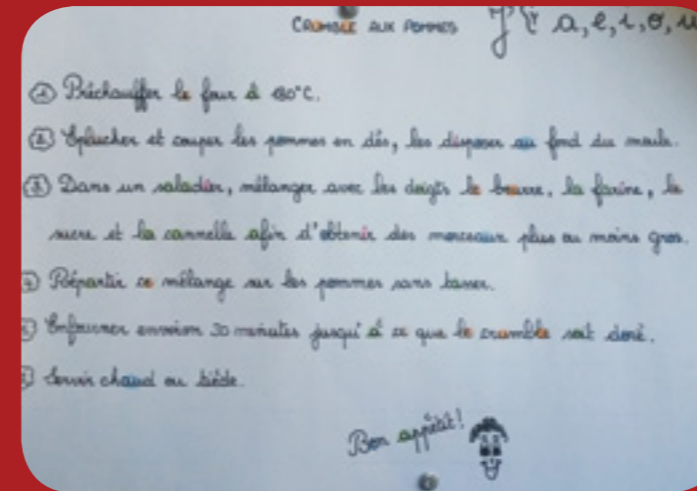 CRUMBLE AUX POMMES a, e, i, o, u
① Préchauffer le four à 180°C.
② Eplucher et couper les pommes en dés, les disposer au fond du moule.
③ Dans un saladier, mélanger avec les doigts le beurre, la farine, le
sucre et la cannelle afin d'obtenir des morceaux plus ou moins gros.
④ Répartir ce mélange sur les pommes sans tasser.
⑤ Enfourner environ 30 minutes jusqu'à ce que le crumble soit doré.
⑥ Servir chaud ou tiède.
Bon appétit!